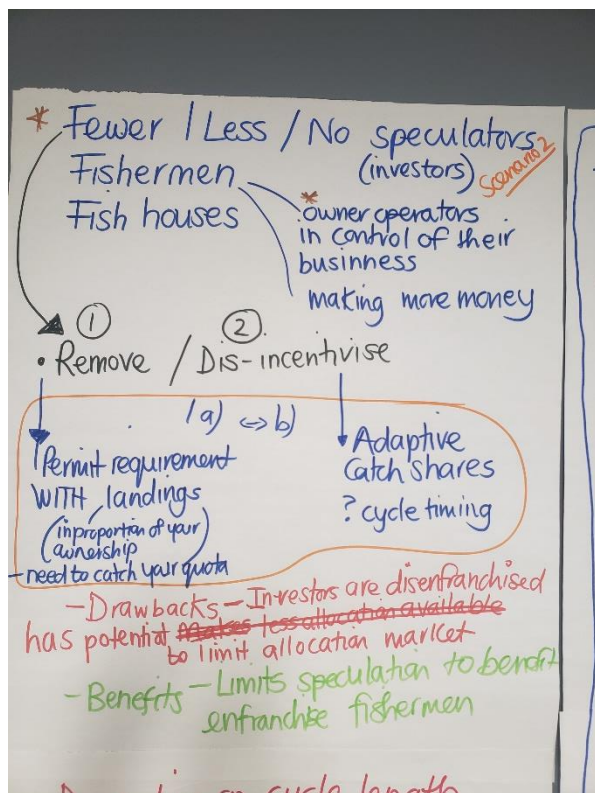 * Fewer / Less / No speculators
(investors)
Scenario 2
Fishermen
Fish houses
* owner operators
in control of their
businness
making more money
① ②
• Remove / Dis-incentivise
1a) <=> b)
Permit requirement
WITH landings
(inproportion of your
ownership)
- need to catch your quota
Adaptive
Catch shares
? cycle timing
- Drawbacks - Investors are disenfranchised
has potential makes less allocation available
to limit allocation market
- Benefits - Limits speculation to benefit
enfranchise fishermen
cycle length